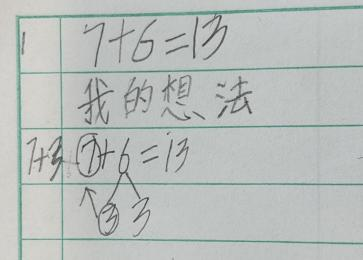 1 7+6=13
我的想法
7+3 7+6=13
3 3